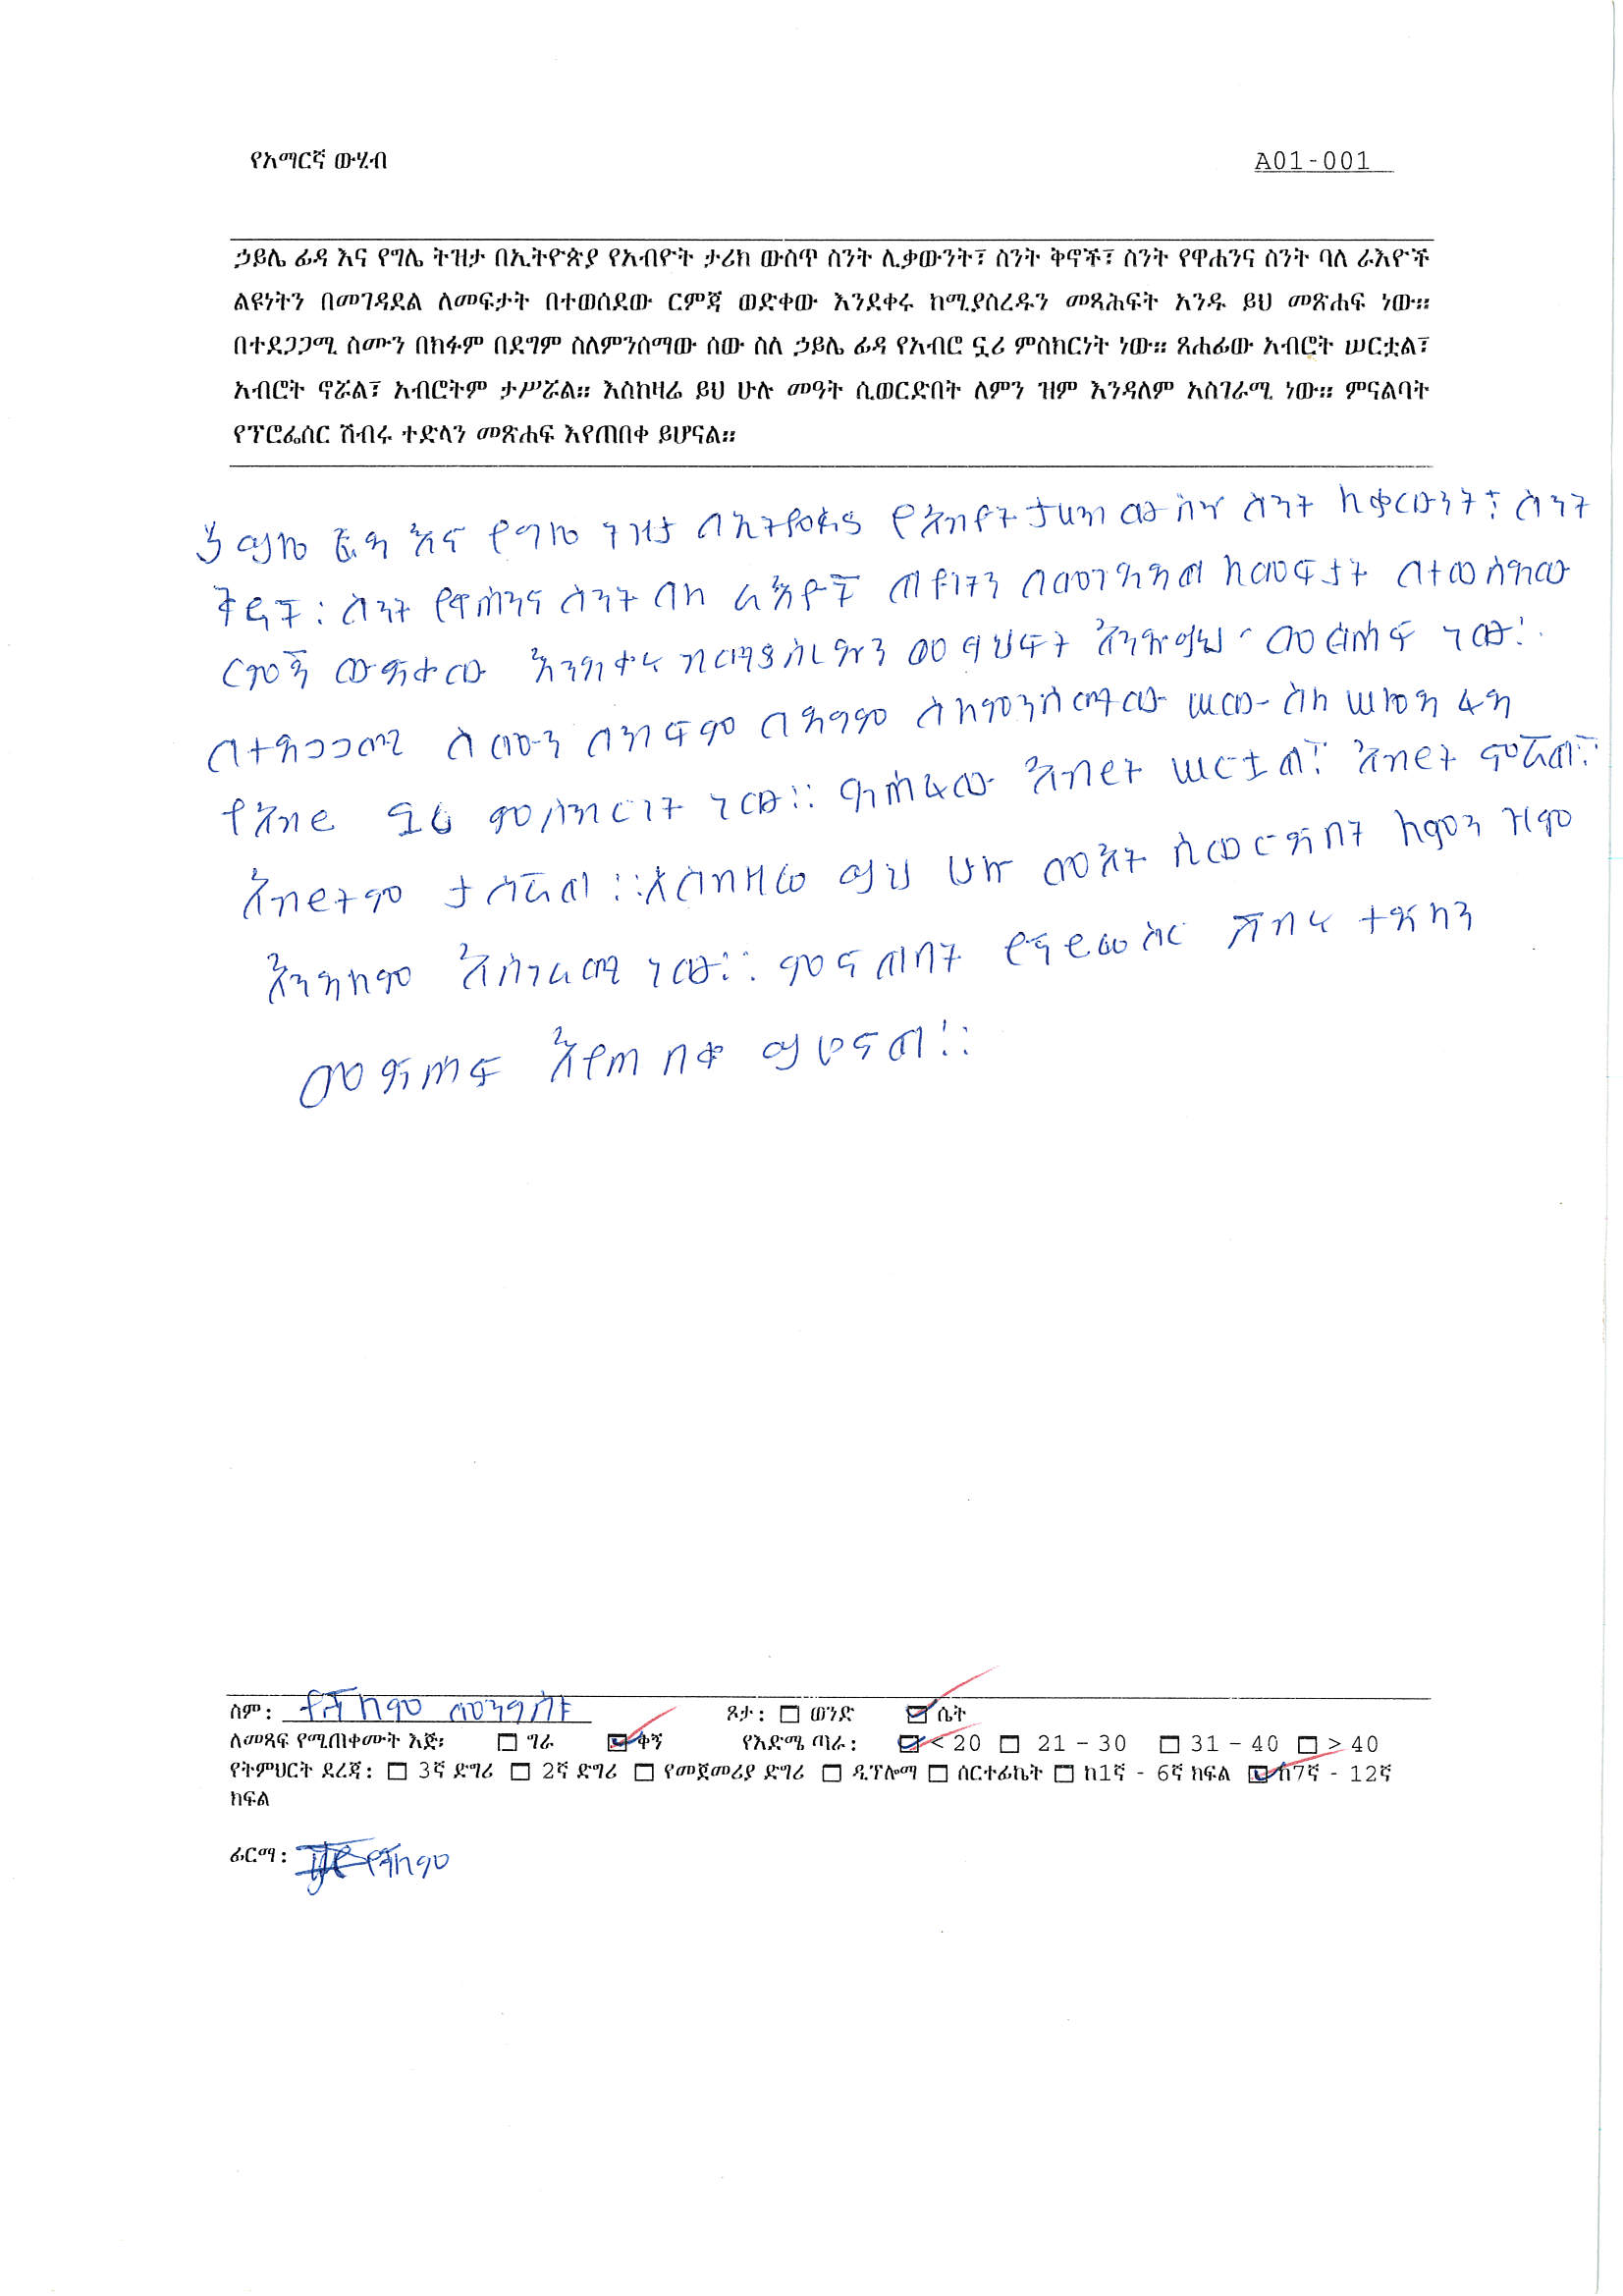 የአማርኛ ውሂብ A01-001
ኃይሌ ፊዳ እና የግሌ ትዝታ በኢትዮጵያ የአብዮት ታሪክ ውስጥ ስንት ሊቃውንት፣ ስንት ቅኖች፣ ስንት የዋሐንና ስንት ባለ ራእዮች
ልዩነትን በመገዳደል ለመፍታት በተወሰደው ርምጃ ወድቀው እንደቀሩ ከሚያስረዱን መጻሕፍት አንዱ ይህ መጽሐፍ ነው።
በተደጋጋሚ ስሙን በክፉም በደግም ስለምንሰማው ሰው ስለ ኃይሌ ፊዳ የአብሮ ኗሪ ምስክርነት ነው። ጸሐፊው አብሮት ሠርቷል፣
አብሮት ኖሯል፣ አብሮትም ታሥሯል። እስከዛሬ ይህ ሁሉ መዓት ሲወርድበት ለምን ዝም እንዳለም አስገራሚ ነው። ምናልባት
የፕሮፌሰር ሽብሩ ተድላን መጽሐፍ እየጠበቀ ይሆናል።
ኃይሌ ፊዳ እና የግሌ ትዝታ በኢትዮጵያ የአብዮት ታሪክ ውስጥ ስንት ሊቃውንት፣ ስንት
ቅኖች፡ ስንት የዋሐንና ስንት ባለ ራእዮች ልዩነትን በመገዳደል ለመፍታት በተወሰደው
ርምጃ ወድቀው እንደቀሩ ከሚያስረዱን መፃህፍት አንዱ ይህ መፅሐፍ ነው።
በተደጋጋሚ ስሙን በክፍም በደግም ስለምንሰማው ሠው ስለ ሀይሌ ፊዳ
የአብሮ ኗሪ ምስክርነት ነው። ፃሐፊው አብሮት ሠርቷል፣ አብሮት ኖሯል፣
አብሮትም ታስሯል።እስከዛሬ ይህ ሁሉ መአት ሲወርድበት ለምን ዝም
እንዳለም አስገራሚ ነው። ምናልባት የፕሮፌሰር ሽብሩ ተድላን
መጽሐፍ እየጠበቀ ይሆናል።
ስም: የሻለም መንግስቱ ጾታ: ወንድ ሴት
ለመጻፍ የሚጠቀሙት እጅ፡ ግራ ቀኝ የእድሜ ጣራ: < 20 21 - 30 31 - 40 > 40
የትምህርት ደረጃ: 3ኛ ድግሪ 2ኛ ድግሪ የመጀመሪያ ድግሪ ዲፕሎማ ሰርተፊኬት ከ1ኛ - 6ኛ ክፍል ከ7ኛ - 12ኛ
ክፍል
ፊርማ: የሻለም